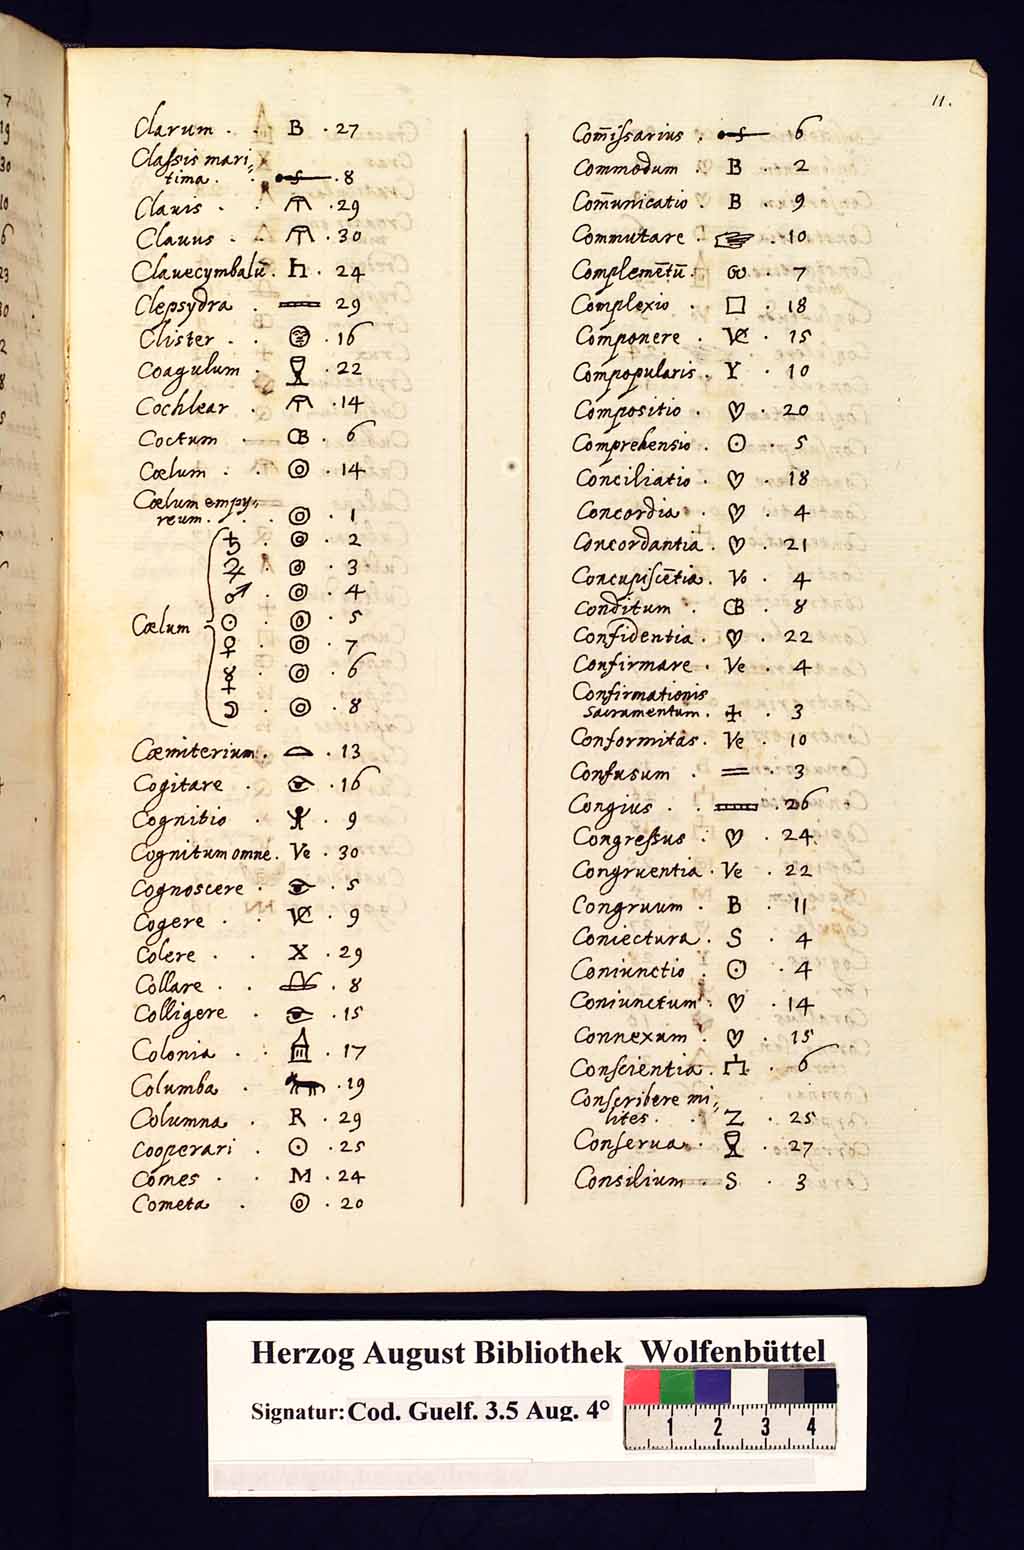 11.
Clarum . . B . 27
Classis mari,
tima . . 8
Clauis . . 29
Clauus . . 30
Clauecymbalũ . . 24
Clepsydra . 29
Clister . . 16
Coagulum . 22
Cochlear . 14
Coctum . CB . 6
Cœlum . . ◎ . 14
Cœlum empy,
reum . . . ◎ . 1
♄ . ◎ . 2
♃ . ◎ . 3
♂ . ◎ . 4
Cœlum ☉ . ◎ . 5
♀ . ◎ . 7
☿ . ◎ . 6
☽ . ◎ . 8
Cœmiterium . . 13
Cogitare . . 16
Cognitio . . 9
Cognitum omne . Ve . 30
Cognoscere . . 5
Cogere . . . 9
Colere . . X . 29
Collare . . . 8
Colligere . . 15
Colonia . . . 17
Columba . . 19
Columna . R . 29
Cooperari . ☉ . 25
Comes . . M . 24
Cometa . ◎ . 20
Com̃issarius . . 6
Commodum . B . 2
Com̃unicatio . B . 9
Commutare . . 10
Complemẽtũ . . 7
Complexio . □ . 18
Componere . . 15
Compopularis . Y . 10
Compositio . ♡ . 20
Comprehensio . ☉ . 5
Conciliatio . ♡ . 18
Concordia . ♡ . 4
Concordantia . ♡ . 21
Concupiscẽtia . Vo . 4
Conditum . CB . 8
Confidentia . ♡ . 22
Confirmare . Ve . 4
Confirmationis
Sacramentum . . 3
Conformitas . Ve . 10
Confusum . = . 3
Congius . . . 26
Congressus . ♡ . 24
Congruentia . Ve . 22
Congruum . B . 11
Coniectura . S . 4
Coniunctio . ☉ . 4
Coniunctum . ♡ . 14
Connexum . ♡ . 15
Conscientia . . 6
Conscribere mi,
lites . . Z . 25
Conserua . . 27
Consilium . S . 3
Herzog August Bibliothek Wolfenbüttel
Signatur: Cod. Guelf. 3.5 Aug. 4°
1 2 3 4